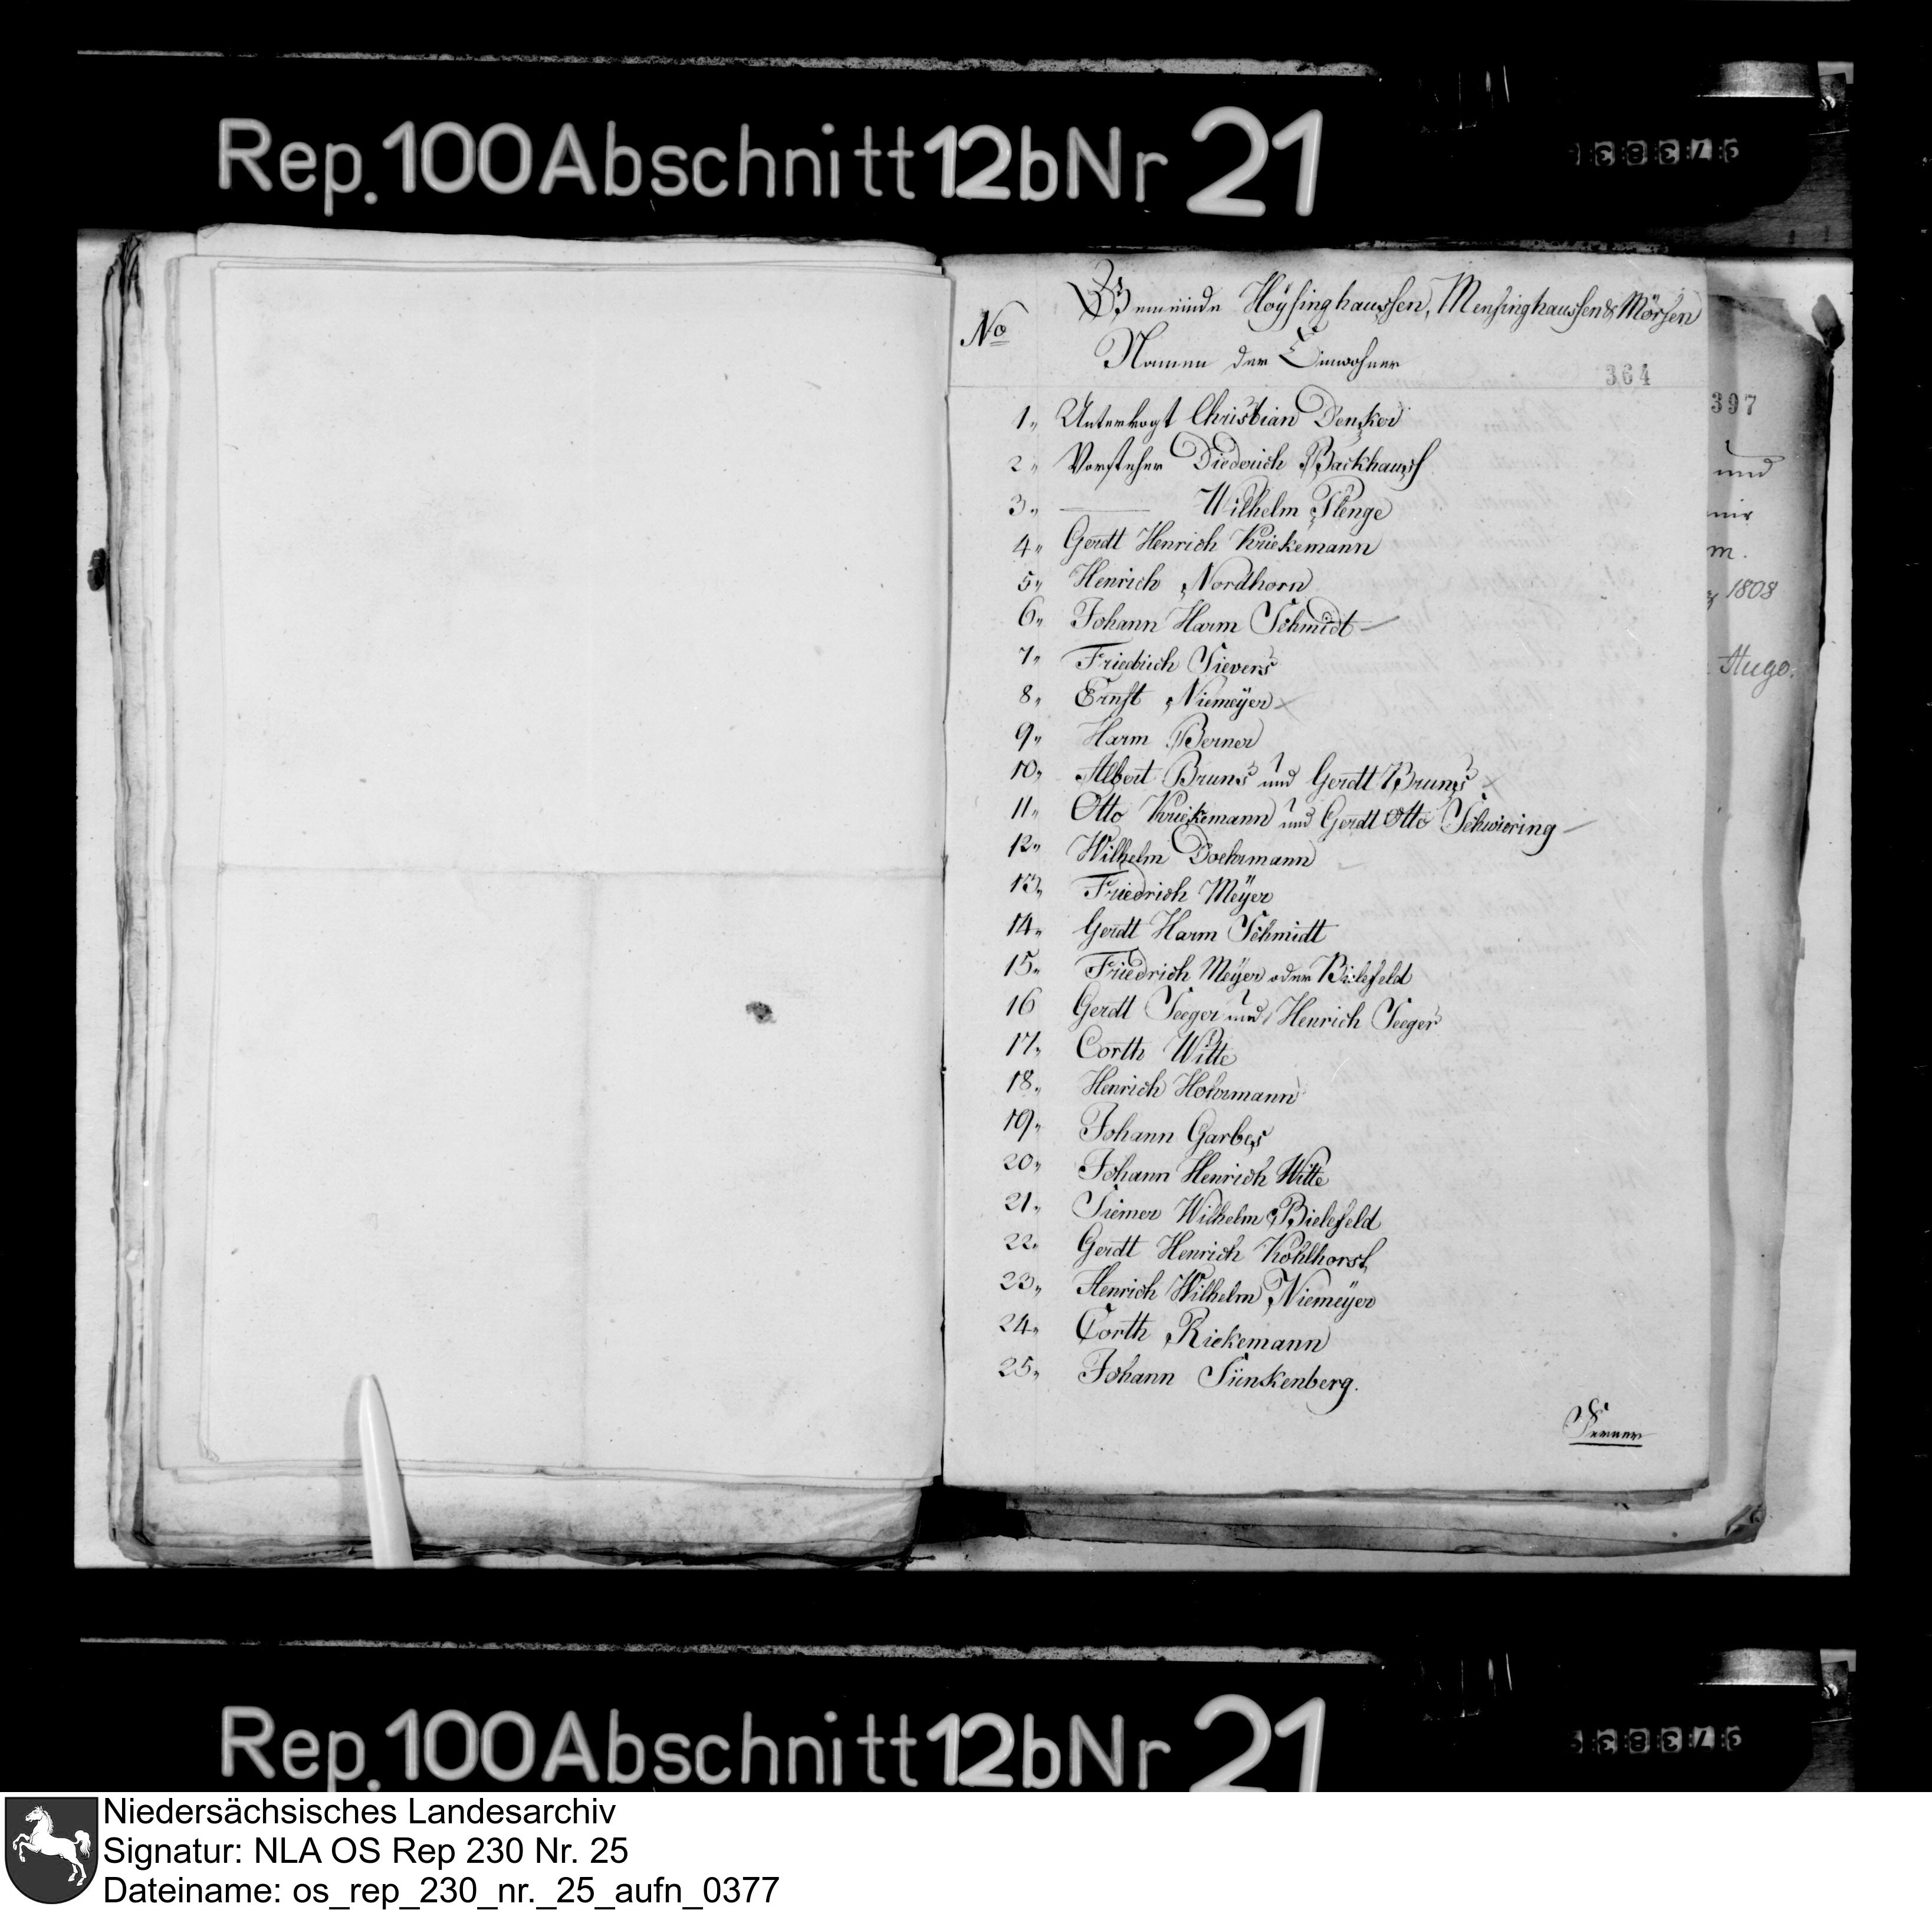 Rep. 100 Abschnitt 12b Nr 21
Gemeinde Hoÿsinghaussen, Mensinghaussen & Mörsen
No
Namen der Einwohner
364
1„ Untervogt Christian Denker
2„ Vorsteher Diederich Backhauss
3„ ——— Wilhelm Plenge
4„ Gerdt Henrich Kriekemann
5„ Henrich Nordhorn
6„ Johann Harm Schmidt
7„ Friedrich Sievers
8„ Ernst Niemeÿer
9„ Harm Berner
10„ Albert Bruns und Gerdt Bruns
11„ Otto Kriekemann und Gerdt Otto Schwiering
12„ Wilhelm Doehrmann
13„ Friedrich Meÿer
14„ Gerdt Harm Schmidt
15„ Friedrich Meÿer oder Bielefeld
16 Gerdt Seeger und Henrich Seeger
17„ Corth Witte
18„ Henrich
19„ Johann Garbes
20„ Johann Henrich Witte
21„ Siemer Wilhelm Bielefeld
22„ Gerdt Henrich Kohlhorst
23„ Henrich Wilhelm Niemeÿer
24„ Corth Riekemann
25„ Johann Sünkenberg.
Ferner
397
und
mir
m.
1808
Hugo.
Rep. 100 Abschnitt 12b Nr 21
Niedersächsisches Landesarchiv
Signatur: NLA OS Rep 230 Nr. 25
Dateiname: os_rep_230_nr._25_aufn_0377